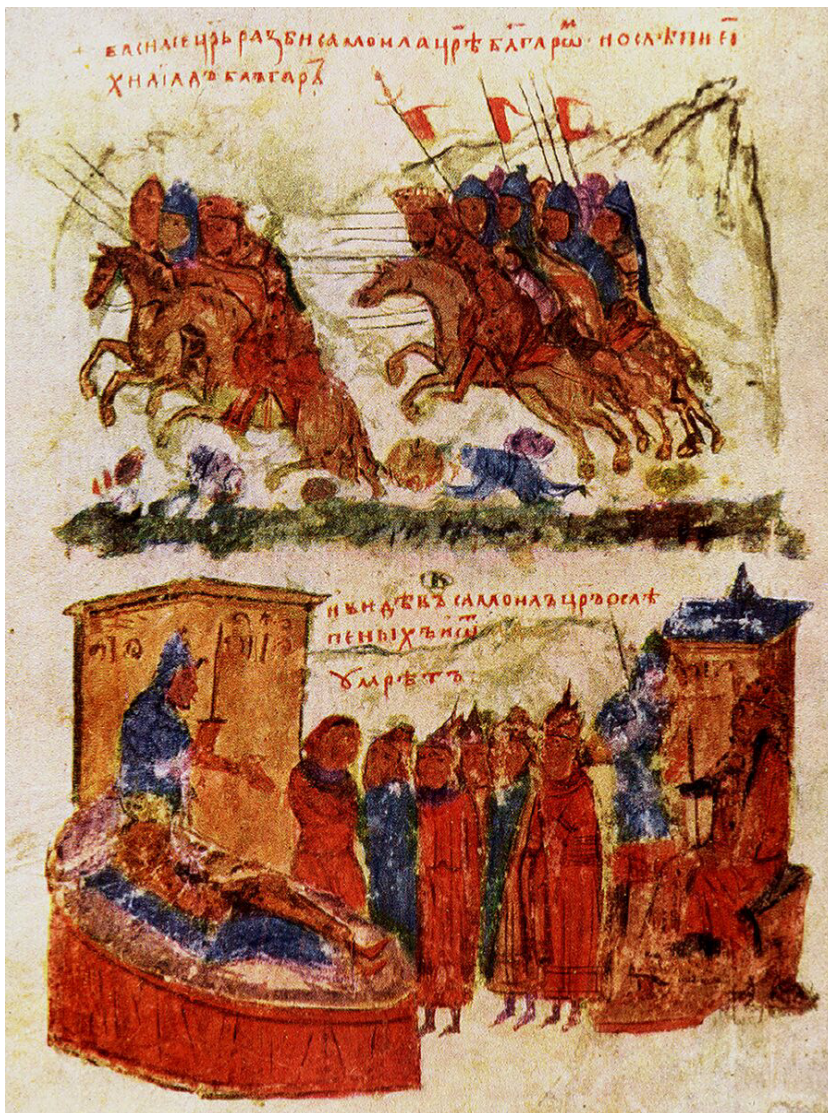 василие црь разби самоила црѣ блъгарѡм
хилꙗдъ блъгаръ
и видѣвъ самоилъ црь ослѣ
пеныхъ
ꙋмрѣтъ